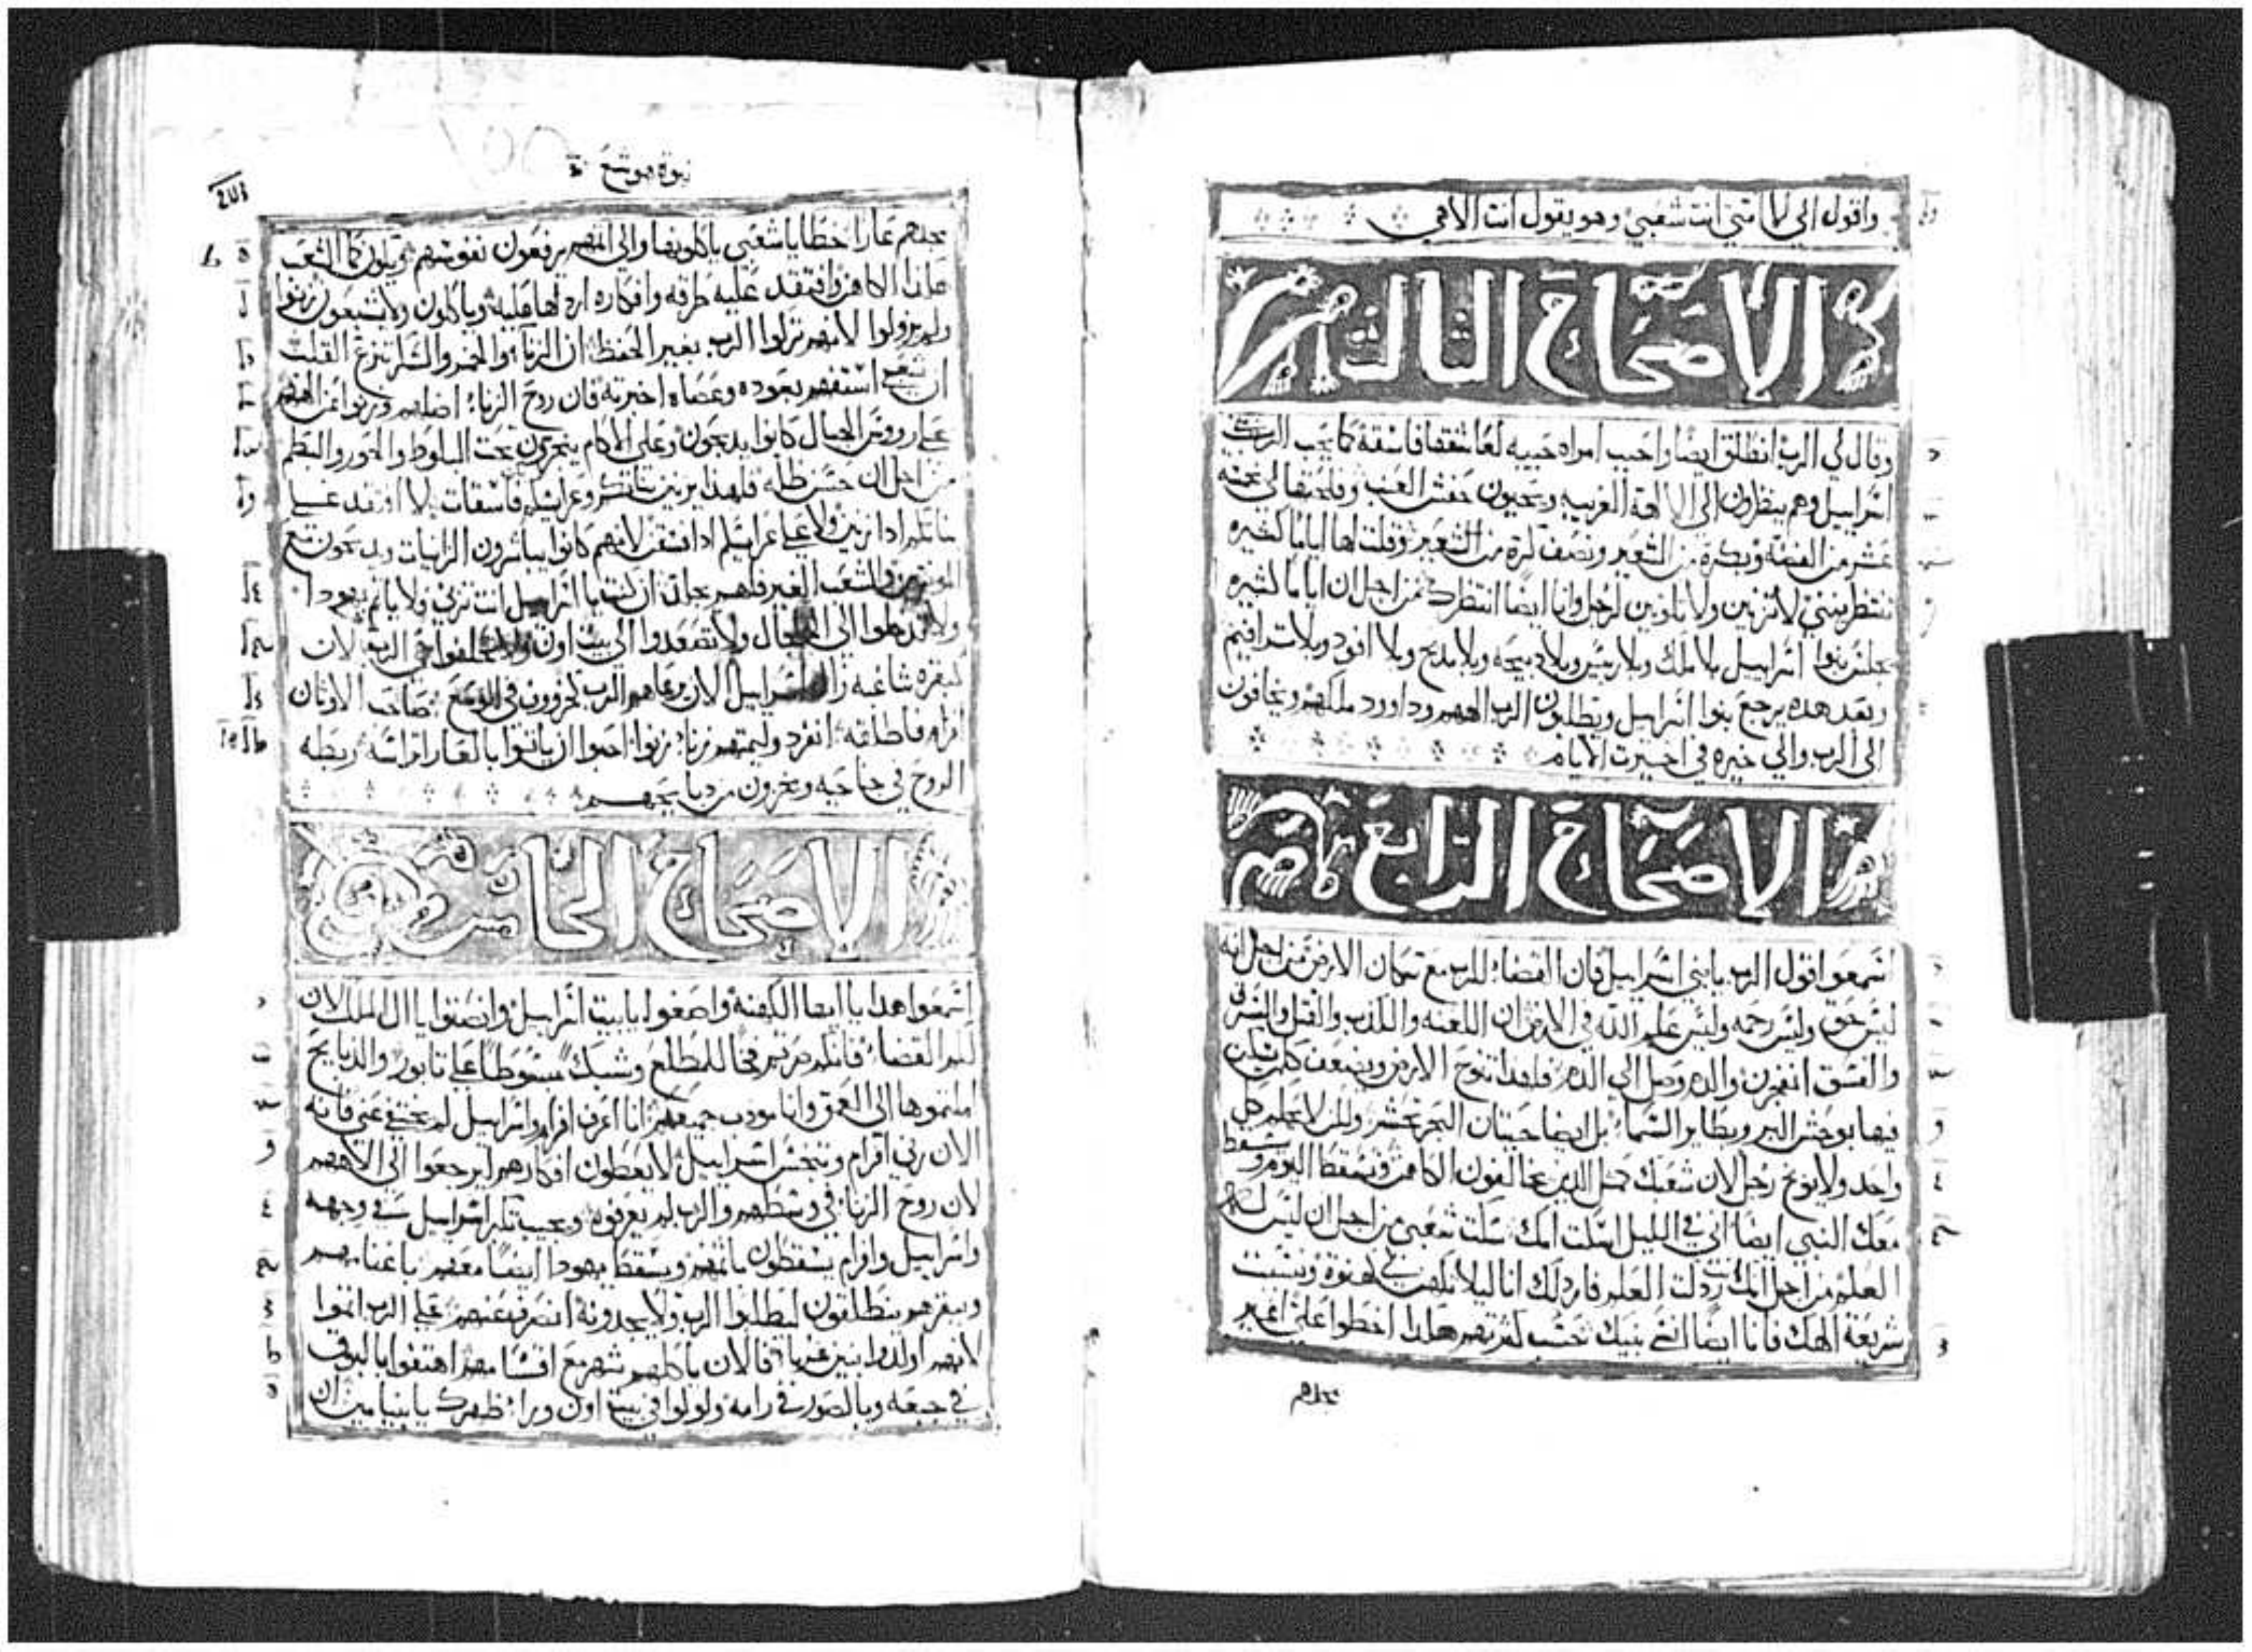 واقول الى لا امتي انت شعبي وهو يقول انت الاهي
الاصحاح الثالث
وقال لي الرب انطلق ايضا واحبب امراه حبيبه لعاشقها فاسقة كما يحب الرب بني
اسراييل وهم ينظرون الى الالهة الغريبه ويحبون حفش العنب وفلحتها لي بخمسة
عشر من الفضة وبكرة من الشعير ونصف كرة من الشعير وقلت لها اياما كثيره
تنتظرينني لا تزنين ولا تكونين لرجل وانا ايضا انتظرك من اجل ان اياما كثيره
يجلس بنوا اسراييل بلا ملك وبلا رييس وبلا دبيحه وبلا مدبح وبلا افود وبلا تترافيم
وبعد هده يرجع بنوا اسراييل ويطلبون الرب الههم وداوود ملكهم ويخافون
الى الرب والي خيره في اخيرت الايام
الاصحاح الرابع
اسمعوا قول الرب يا بني اسراييل فان القضاء للرب مع سكان الارض من اجل انه
ليس حق وليس رحمه وليس علم الله في الارض ان اللعنه والكدب والقتل والسرق
والفسق انفجرن والدم وصل الي الدم فلهدا تنوح الارض ويضعف كل ساكن
فيها بوحش البر وبطاير السماء بل ايضا حيتان البحر تحشر ولكن لا يحكم كل
واحد ولا يوبخ رجل لان شعبك كمثل الدين يخالفون الكاهن وتسقط اليوم ويسقط
معك النبي ايضا اني في الليل اسكت امك سكت شعبي من اجل ان ليس له
العلم من اجل انك انت ردلت العلم فاردلك انا ليلا تكهن لي كهنوة ونسيت
شريعة الهك فانا ايضا انسى بنيك حسب كثرتهم هكدا اخطوا علي اغير
مجدهم
نبوة هوشع
مجدهم عارا خطايا شعبي ياكلونها والي اثمهم يرفعون نفوسهم ويكون كما الشعب
هكدا الكاهن وافتقد عليه طرقه وافكاره ارد لها عليه وياكلون ولا يشبعون زنوا
ولم يزولوا لانهم تركوا الرب بغير الحفظ ان الزناء والخمر والسكر تنزع القلب
ان شعبي استفهم بعوده وعصاه اخبرته فان روح الزناء اضلهم وزنوا عن الههم
على رووس الجبال كانوا يدبحون وعلى الاكام يبخرون تحت البلوط والحور والبطم
من اجل ان حسن ظله فلهدا يزنين بناتكم وعرايسكم فاسقات لا افتقد على
بناتكم ادا زنين ولا على عرايسكم ادا فسقن لانهم كانوا يباشرون الزانيات ويدبحون مع
الموتنين والشعب الغير فاهم يجلد ان كنت يا اسراييل انت تزني ولا ياثم يهودا
ولا تدخلوا الى الجلجال ولا تصعدوا الى بيت اون ولا تحلفوا حي الرب لان
كبقره شاغبه زاغ اسراييل الان يرعاهم الرب كخروف في الوسع صاحب الاوثان
افرام فاطلقه انفرد وليمتهم زناء زنوا احبوا ان ياتوا بالعار اتراسه ربطه
الروح في جناحيه ويخزون من دبايحهم
الاصحاح الخامس
اسمعوا هدا يا ايها الكهنة واصغوا يا بيت اسراييل وانصتوا يا ال الملك لان
لكم القضاء فانكم صرتم فخا للمطلع وشبكة مبسوطا على تابور والدبايح
املتموها الى العمق وانا مودب جميعهم انا اعرف افرام واسراييل لم يختفي عني فانه
الان زني افرام وتنجس اسراييل لا يعطون افكارهم ليرجعوا الى الاههم
لان روح الزناء في وسطهم والرب لم يعرفوه ويجيب تكبر اسراييل في وجهه
واسراييل وافرام يسقطون باثمهم ويسقط يهودا ايضا معهم باغنامهم
وببقرهم ينطلقون ليطلبوا الرب ولا يجدونه انصرف عنهم على الرب اثموا
لانهم اولدوا بنين غربا فالان ياكلهم شهر مع اقسامهم اهتفوا بالبوق
في جبعه وبالصور في رامه ولولوا في بيت اون ورا ظهرك يا بنيامين ان